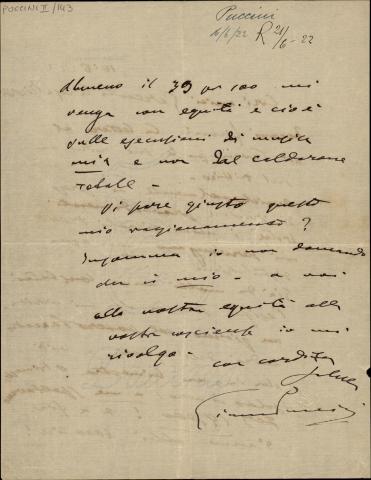 PUCCINI II/143
Puccini
16/6/22 R 21/6-22
Almeno il 39 per 100 mi
venga con equità e cioè
sulle esecuzioni di musica
mia e non dal calderone
totale -
Vi pare giusto questo
mio ragionamento?
Insomma io non domando
che il mio - a voi
alla vostra equità alla
vostra coscienza io mi
rivolgo -
con cordiali
saluti
Giacomo Puccini